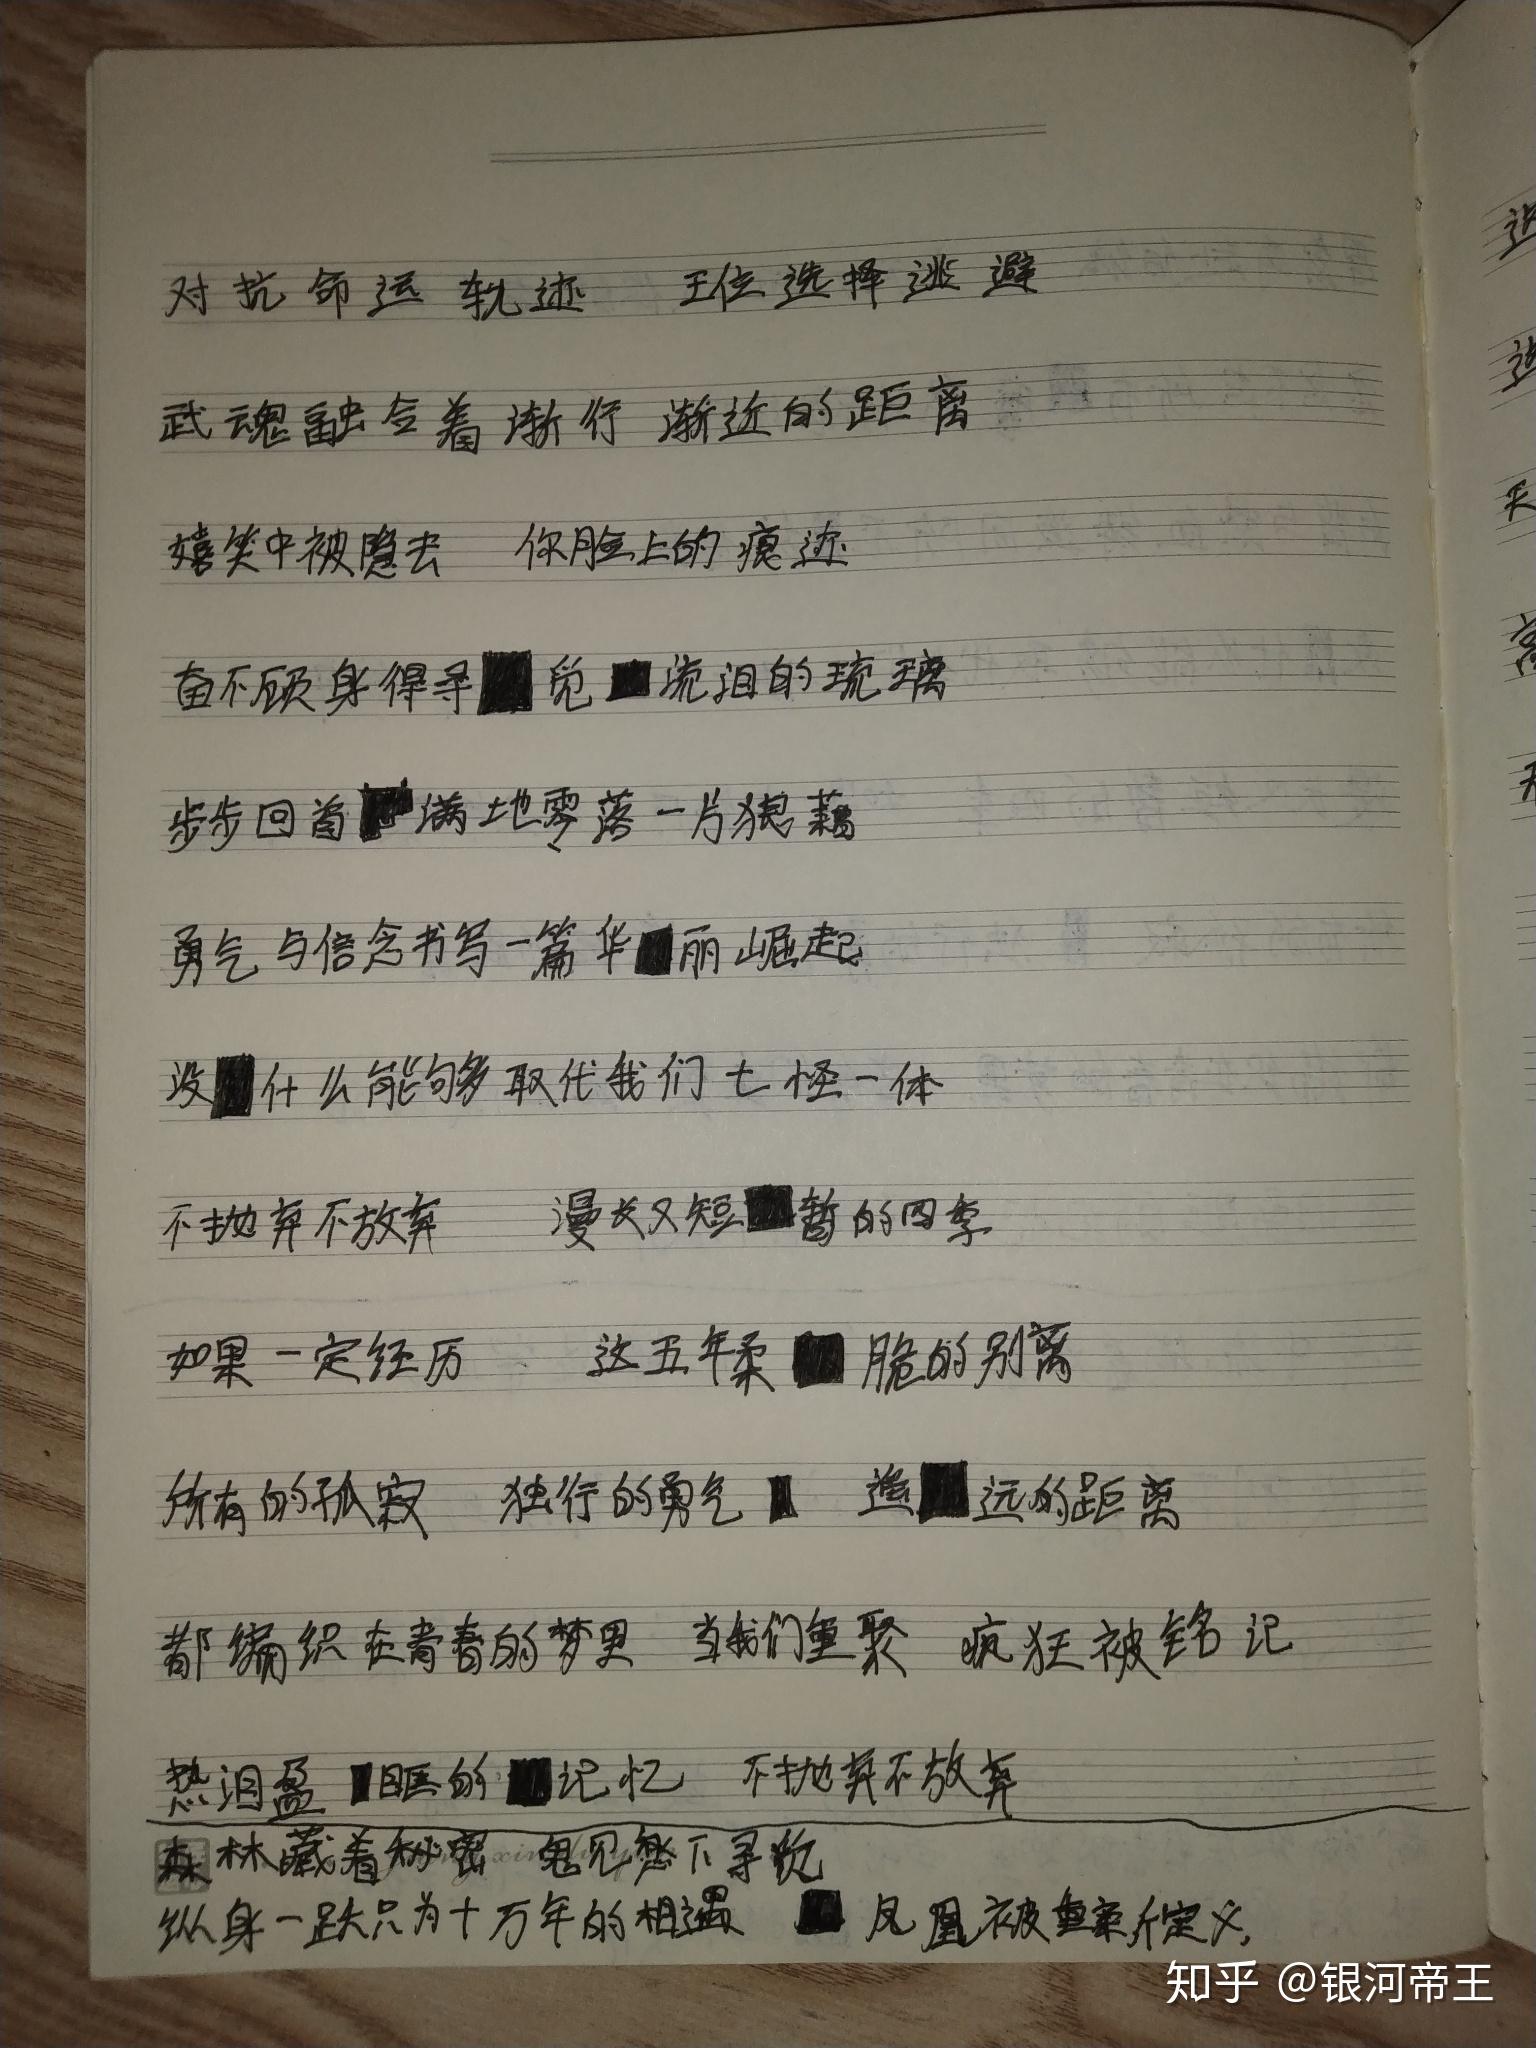 对抗命运轨迹 王位选择逃避
武魂融合着渐行渐近的距离
嬉笑中被隐去 你脸上的痕迹
奋不顾身得寻觅流泪的琉璃
步步回首满地零落一片狼藉
勇气与信念书写一篇华丽崛起
没什么能够取代我们七怪一体
不抛弃不放弃 漫长又短暂的四季
如果一定经历 这五年柔脆的别离
所有的孤寂 独行的勇气 遥远的距离
都编织在青春的梦里 当我们重聚 疯狂被铭记
热泪盈眶的记忆 不抛弃不放弃
森林藏着秘密 鬼见愁下寻觅
纵身一跃只为十万年的相遇 凤凰被重新定义
知乎 @银河帝王